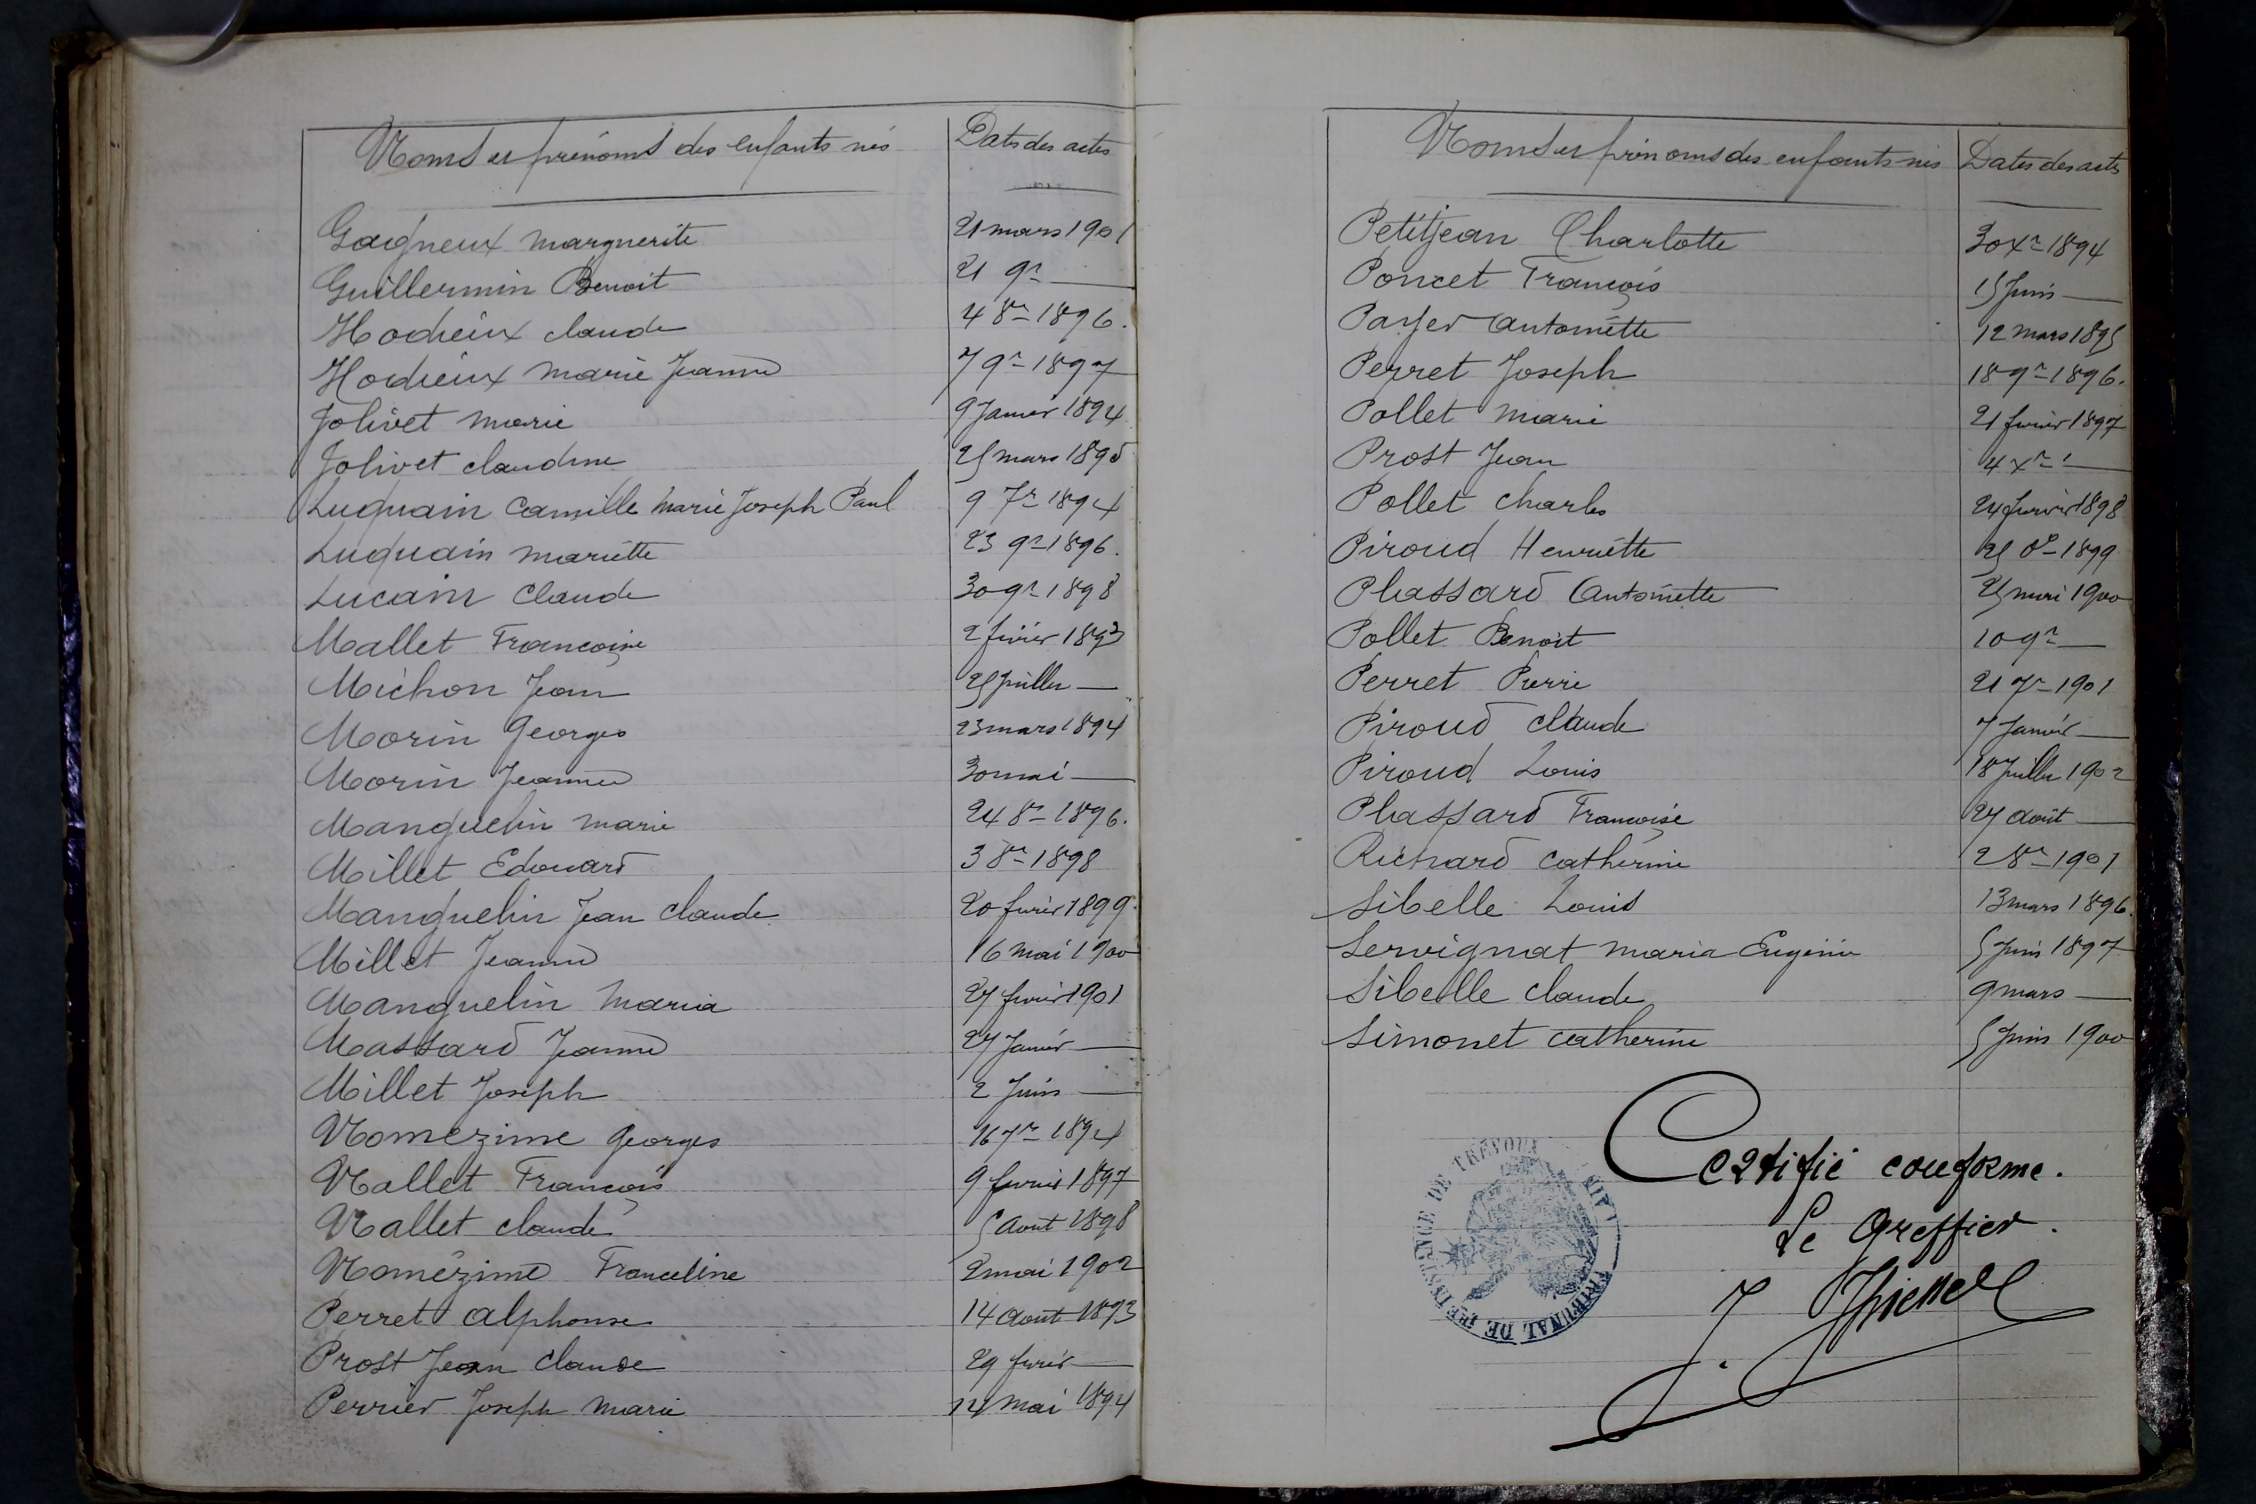 Noms et prénoms des enfants nés Dates des actes
Gagneux Marguerite 21 mars 1901
Guillermin Benoit 21 9re —
Hodieux claude 4 8re 1896.
Hodieux Marie Jeanne 7 9re 1897
Jolivet Marie 9 Janvier 1894
Jolivet claudine 25 mars 1895
Luquain Camille Marie Joseph Paul 9 7re 1894
Luquain Mariette 23 9re 1896.
Lucain Claude 30 9re 1898
Mallet Francoise 2 février 1893
Michon Jean 25 Juillet —
Morin Georges 23 mars 1894
Morin Jeanne 30 mai —
Manguelin Marie 24 8re 1896.
Millet Edouard 3 8re 1898
Manguelin Jean Claude 20 février 1899.
Millet Jeanne 16 mai 1900
Manguelin Maria 27 février 1901
Massard Jeanne 27 Janvier —
Millet Joseph 2 Juin —
Nomézime Georges 16 7re 1894
Nallet François 9 février 1897
Nallet claude 5 Aout 1898
Nomézime Franceline 2 mai 1902
Perret alphonse 14 Aout 1893
Prost Jean Claude 29 février —
Perrier Joseph Marie 14 Mai 1894
Noms et prénoms des enfants nés Dates des actes
Petitjean Charlotte 30 Xre 1894
Poncet François 15 Juin —
Payer Antoinette 12 mars 1895
Perret Joseph 18 9re 1896.
Pollet Marie 21 février 1897
Prost Jean 4 Xre —
Pollet Charles 24 février 1898
Piroud Henriette 25 1899
Plassard Antoinette 25 mai 1900
Pollet Benoit 10 9re —
Perret Pierre 21 7re 1901
Piroud claude 7 Janvier —
Piroud Louis 18 Juillet 1902
Plassard Françoise 27 Août —
Richard Catherine 2 8re 1901
Sibelle Louis 13 mars 1896.
Servignat Maria Eugénie 5 Juin 1897
Sibelle claude 9 mars —
Simonet Catherine 5 Juin 1900
Certifié conforme.
Le Greffier.
TRIBUNAL DE 1RE INSTANCE DE TRÉVOUX (AIN)